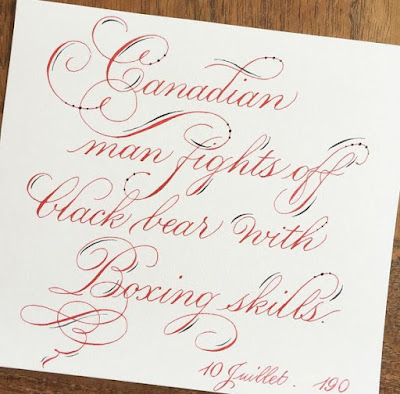 Canadian
man fights off
black bear with
Boxing skills.
10 Juillet. 190